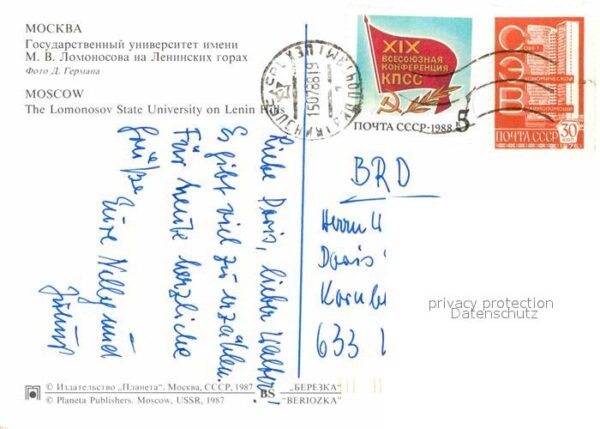 МОСКВА
Государственный университет имени
М. В. Ломоносова на Ленинских горах
Фото Д. Германа
MOSCOW
The Lomonosov State University on Lenin Hills
Liebe Doris, lieber Walter!
Es gibt viel zu erzählen.
Für heute herzliche
Grüße Eure Nelly und
XIX
ВСЕСОЮЗНАЯ
КОНФЕРЕНЦИЯ
КПСС
ПОЧТА СССР·1988
5
СЭВ
ПОЧТА СССР
30
коп
15078819
BRD
Herrn u
Doris
Kornbe
633
privacy protection
Datenschutz
© Издательство „Планета". Москва, СССР, 1987
© Planeta Publishers. Moscow, USSR, 1987
BS
„БЕРЕЗКА"
"BERIOZKA"